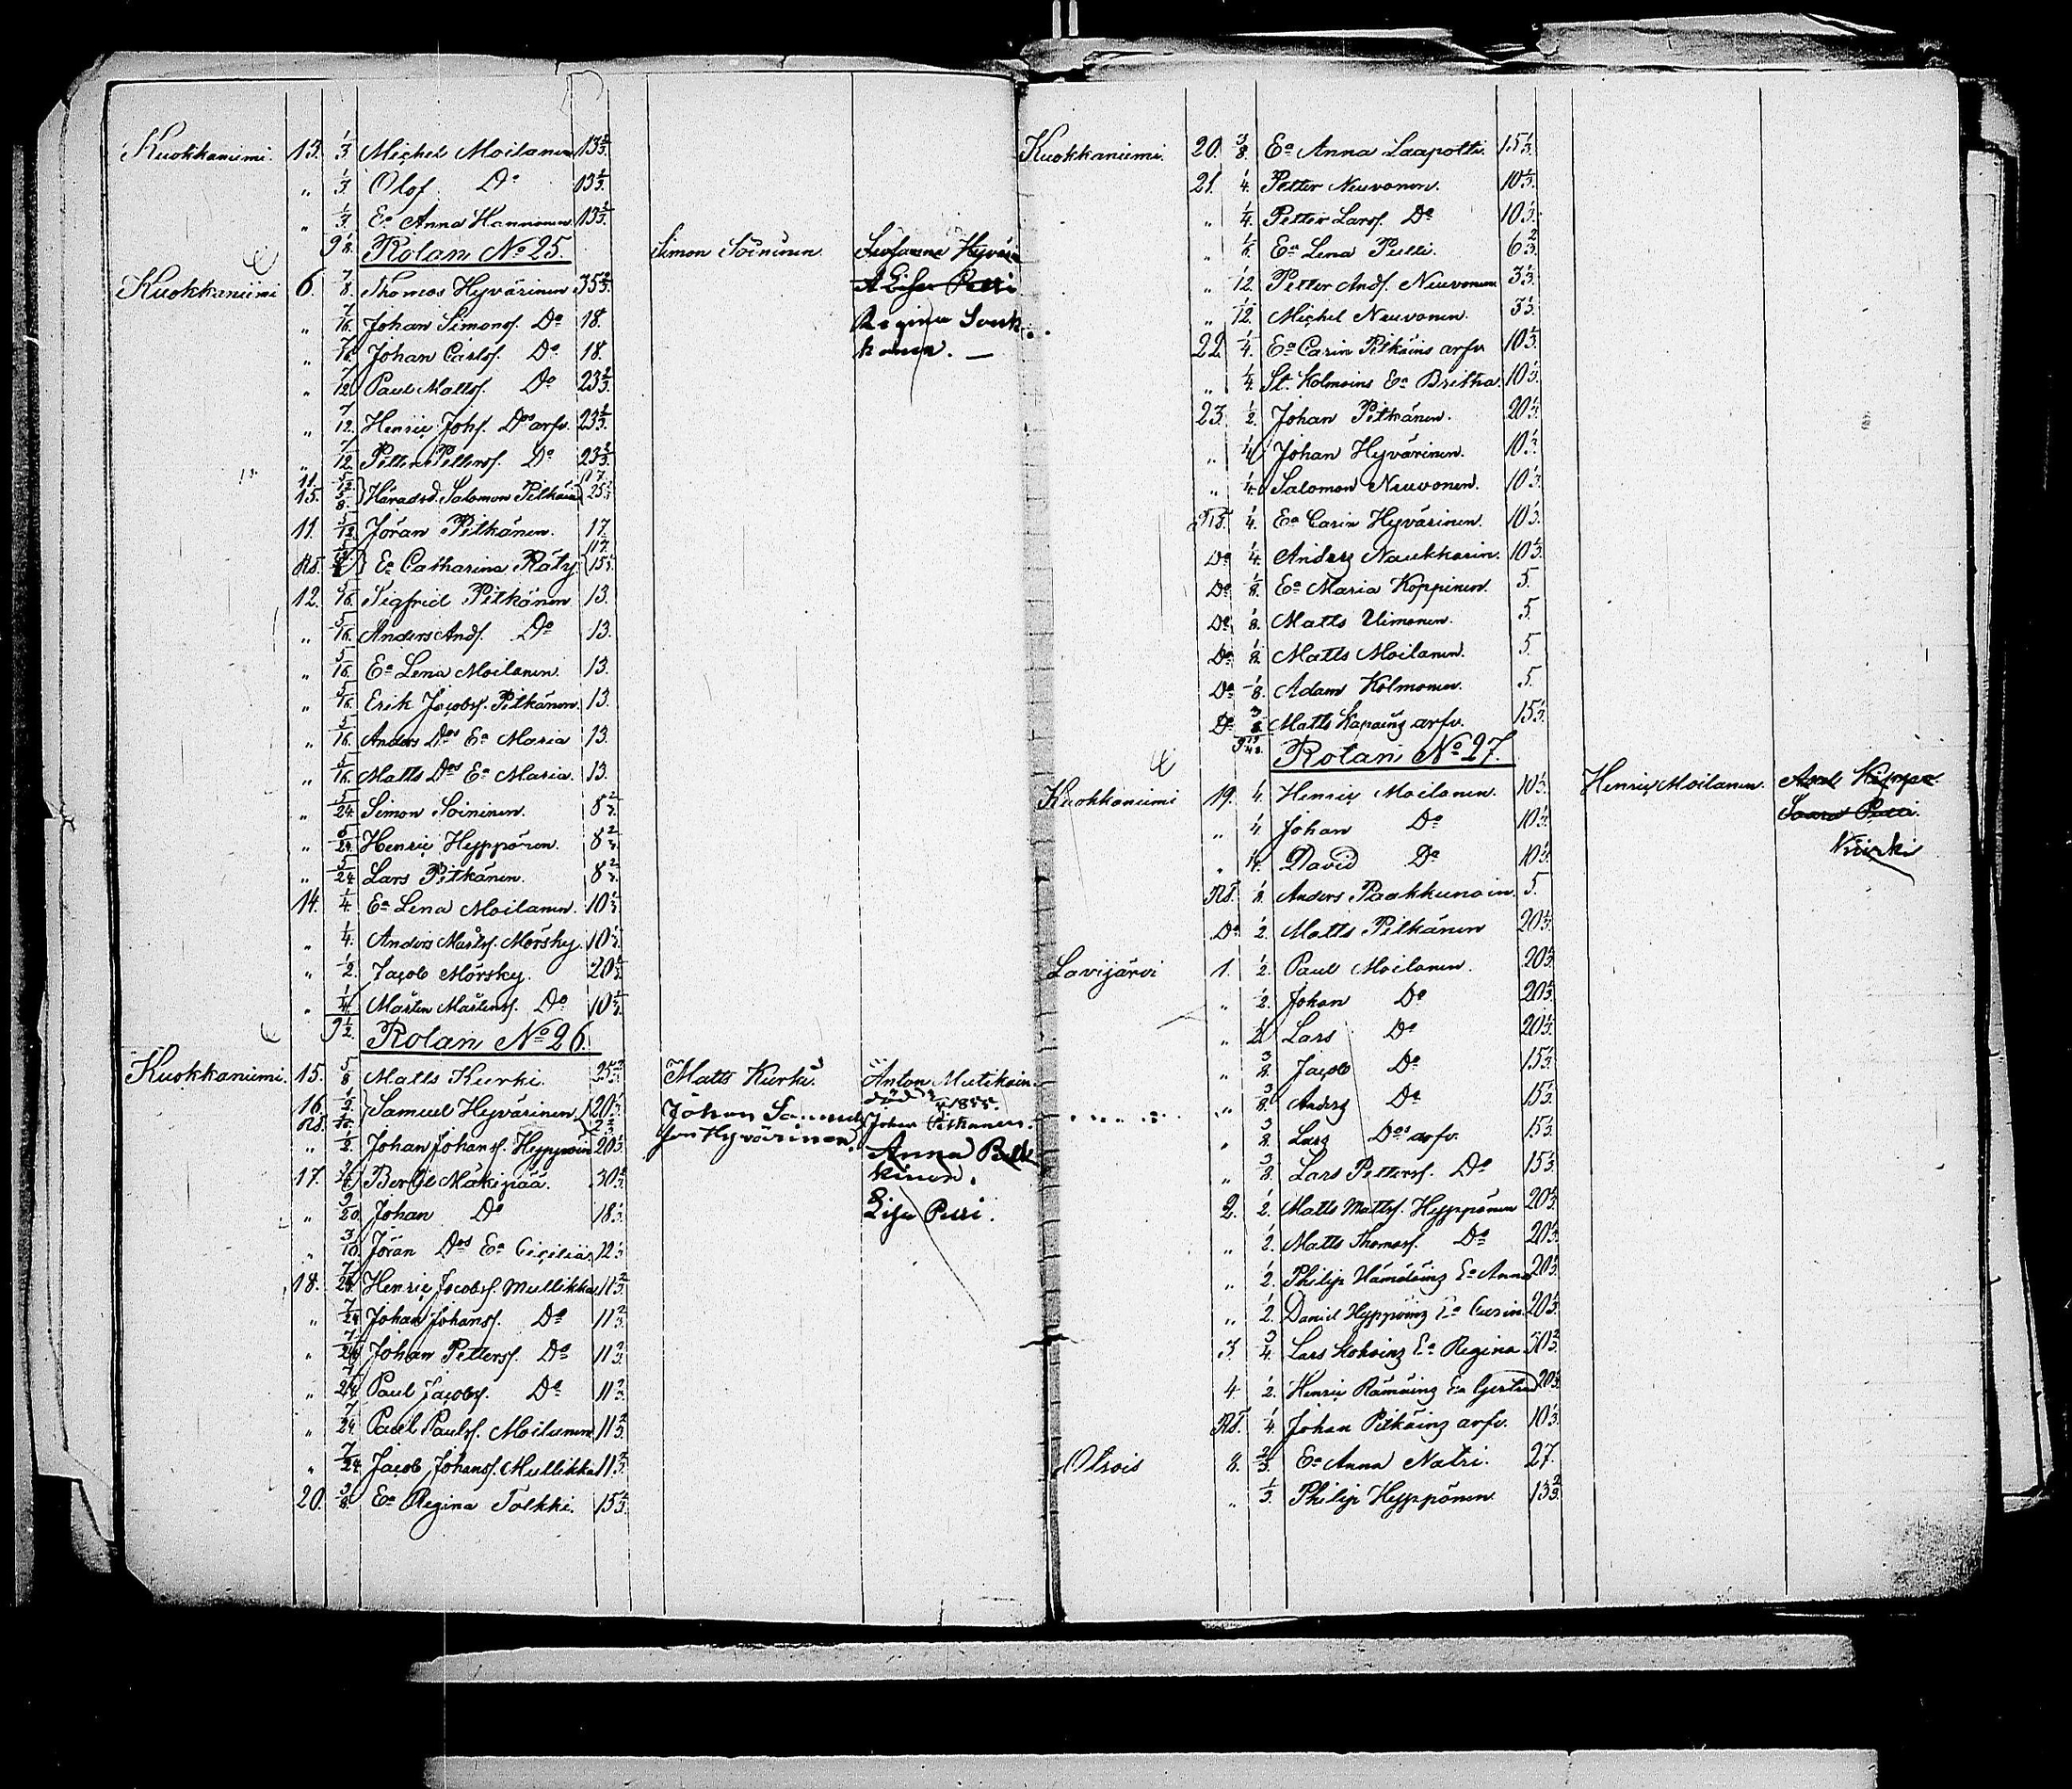 Kuokkaniemi. 13. 1/3. Michel Moilanen 13 2/3.
" 1/3. Olof Do 13 2/3.
" 1/3. Ea Anna Hannonen 13 2/3.
9 1/8. Rotan No 25. Simon Soininen Susanna
Kuokkaniemi 6. 7/8. Thomas Hyvärinen 35 2/3.
" 7/16. Johan Simonss. Do 18. Regina
" 7/16. Johan Carlss. Do 18.
" 7/12 Paul Mattss. Do 23 2/3.
" 7/12. Henric Johs. Dos arfv. 23 2/3.
" 7/12 Petter Petterss. Do 23 2/3.
11. 5/12. 17.
15. 5/8. Häradsd. Salomon Pitkäin 25 2/3
11. 5/12 Jöran Pitkänen. 17.
Rs. Ea Catharina Räty.
12. 5/16. Sigfrid Pitkänen 13.
" 5/16. Anders Ands. Do 13.
" 5/16. Ea Lena Moilanen. 13.
" 5/16. Erik Jacobss. Pitkänen. 13.
" 5/16. Anders Dos Ea Maria 13.
" 5/16. Matts Dos Ea Maria. 13.
" 5/24 Simon Soininen. 8 2/3.
" 5/24. Henric Hyppönen. 8 2/3.
" 5/24 Lars Pitkänen. 8 2/3.
14. 1/4. Ea Lena Moilanen. 10 1/3.
" 1/4. Anders Mårtss. Mörsky. 10 1/3.
" 1/2. Jacob Mörsky. 20 1/3.
" 1/4. Mårten Mårtenss. Do 10 1/3.
9 1/2. Rotan No 26.
Kuokkaniemi. 15. 5/8 Matts Kurki. 25 2/3 Matts Kurki. Anton Mutikain
16. 1/2. Samuel Hyvärinen 20 1/3. Johan Samuels Johan Pitkänen.
Rs. son Hyvärinen.
" 1/2. Johan Johanss. Hyppöin 20 1/3. Anna
17. 3/4. Bertil Mäkipää. 30 2/3.
" 9/20. Johan Do 18 1/3. Lisa Petri.
" 3/10. Jöran Dos Ea Cicilia 12 1/3.
18. 7/24. Henric Jacobss. Mullikka 11 2/3.
" 7/24 Johan Johanss. Do 11 2/3.
" 7/24 Johan Petterss. Do 11 2/3.
" 7/24. Paul Jacobss. Do 11 2/3.
" 7/24. Paul Paulss. Moilanen 11 2/3.
" 7/24 Jacob Johanss. Mullikka 11 2/3.
20. 3/8. Ea Regina Tolkki. 15 1/3.
Kuokkaniemi. 20. 3/8. Ea Anna Laapotti. 15 1/3.
21. 1/4. Petter Neuvonen. 10 1/3.
" 1/4. Petter Larss. Do 10 1/3.
" 1/6. Ea Lena Pulli. 6 2/3.
" 1/12. Petter Ands. Neuvonen 3 1/3.
" 1/12. Michel Neuvonen. 3 1/3.
22. 1/4. Ea Carin Pitkäins arfv. 10 1/3.
" 1/4. St. Kolmoins Ea Britha. 10 1/3.
23. 1/2. Johan Pitkänen. 20 1/3.
" 1/4. Johan Hyvärinen. 10 1/3.
" 1/4. Salomon Neuvonen. 10 1/3.
Rs. 1/4. Ea Carin Hyvärinen. 10 1/3.
Do 1/4. Anders Naukkarin. 10 1/3.
Do 1/8. Ea Maria Koppinen. 5.
Do 1/8. Matts Uimonen. 5.
Do 1/8. Matts Moilanen. 5.
Do 1/8. Adam Kolmonen. 5.
Do 3/8 Matts Kapainz arfv. 15 1/3.
Rotan No 27.
Kuokkaniemi 19. 1/4. Henric Moilanen. 10 1/3. Henric Moilanen.
" 1/4. Johan Do 10 1/3.
" 1/4. David Do 10 1/3.
Rs. 1/8. Anders Paakkunain. 5.
Do 1/2. Matts Pitkänen 20 1/3.
Lavijärvi 1. 1/2. Paul Moilanen. 20 1/3.
" 1/2. Johan Do 20 1/3.
" 1/2. Lars Do 20 1/3.
" 3/8. Jacob Do 15 1/3.
" 3/8. Anders Do 15 1/3.
" 3/8. Lars Dos arfv. 15 1/3.
" 3/8. Lars Petterss. Do 15 1/3.
2. 1/2. Matts Mattss. Hyppönen 20 1/3.
" 1/2. Matts Thomass. Do 20 1/3.
" 1/2. Philip Hämäläinz Ea Anna 20 1/3.
" 1/2. Daniel Hyppöinz Ea Carin. 20 1/3.
3. 3/4. Lars Kohoinz Ea Regina 30 2/3.
4. 1/2. Henric Rämäinz Ea Gertrud 20 1/3.
Rs. 1/4. Johan Pitkäinz arfv. 10 1/3.
Otsois 8. 2/3. Ea Anna Natri. 27.
" 1/3. Philip Hyppönen. 13 2/3.